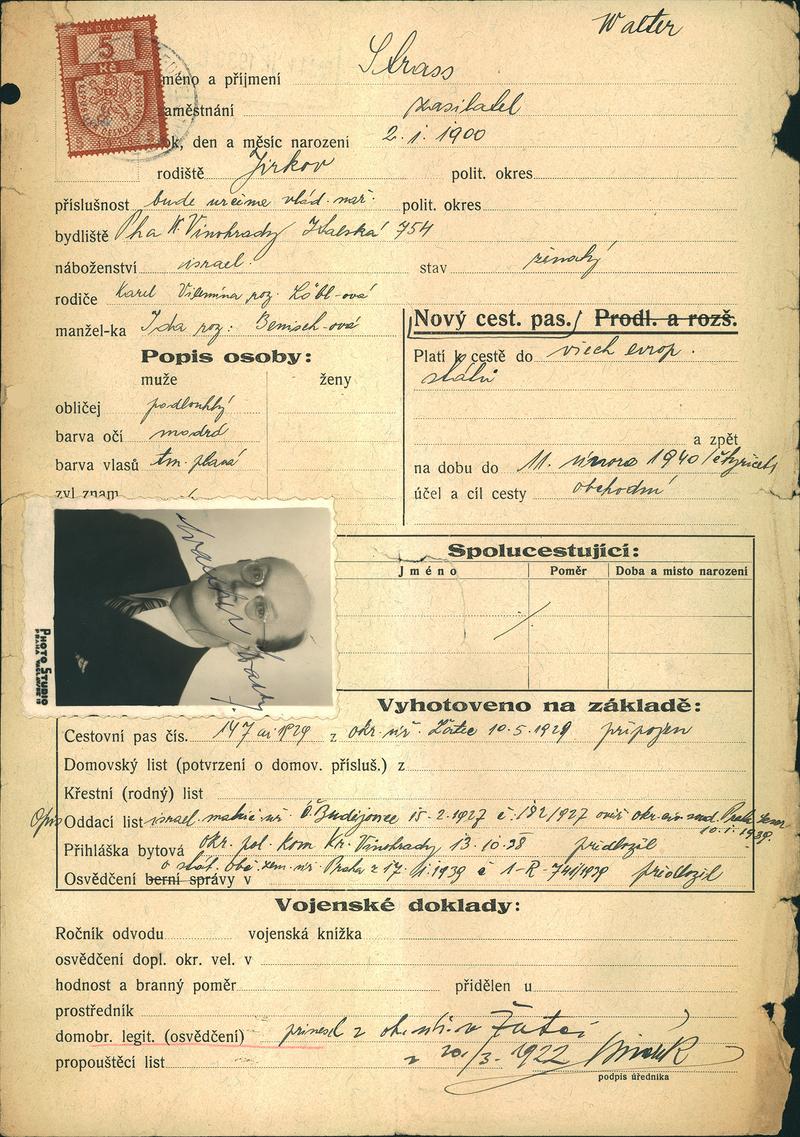 Walter
KOLEK
5
Kč
Strass
méno a příjmení
zasilatel
aměstnání
ok, den a měsíc narození 2. 1. 1900
rodiště Jirkov polit. okres
příslušnost bude určíme vlád. nař. polit. okres
bydliště Pha K. Vinohrady 754
náboženství israel. stav ženatý
rodiče Karel Vilemína roz. Löbl-ová
manžel-ka Ida roz: Benisch-ová
Nový cest. pas. Prodl. a rozš.
Popis osoby:
Platí k cestě do všech evrop.
států
muže ženy
obličej podlouhlý
barva očí modrá
a zpět
barva vlasů tm. plavá
na dobu do 11. února 1940 /čtyřicet/
zvl znam
účel a cíl cesty obchodní
Spolucestující:
Jméno Poměr Doba a misto narození
PHOTO STUDIO
Vyhotoveno na základě:
Cestovní pas čís. 147 ai 1929 z okr. úř. Žatec 10.5.1929 připojen
Domovský list (potvrzení o domov. přísluš.) z
Křestní (rodný) list
Opis Oddací list israel. matric. úř. Č. Budějovice 15.2.1927 č. 182/1927 ově. okr. civ. soud. Praha
10.1.1939.
Přihláška bytová okr. pol. kom Kr. Vinohrady 13.10.38 předložil
o stát. obč. zem. úř. Praha z 17. 1. 1939 č 1-R-741/1939 předložil
Osvědčení berní správy v
Vojenské doklady:
Ročník odvodu vojenská knížka
osvědčení dopl. okr. vel. v
hodnost a branný poměr přidělen u
prostředník
domobr. legit. (osvědčení) přinesl z ok. úř. v Žatci
propouštěcí list z 20/3. 1922
podpis úředníka